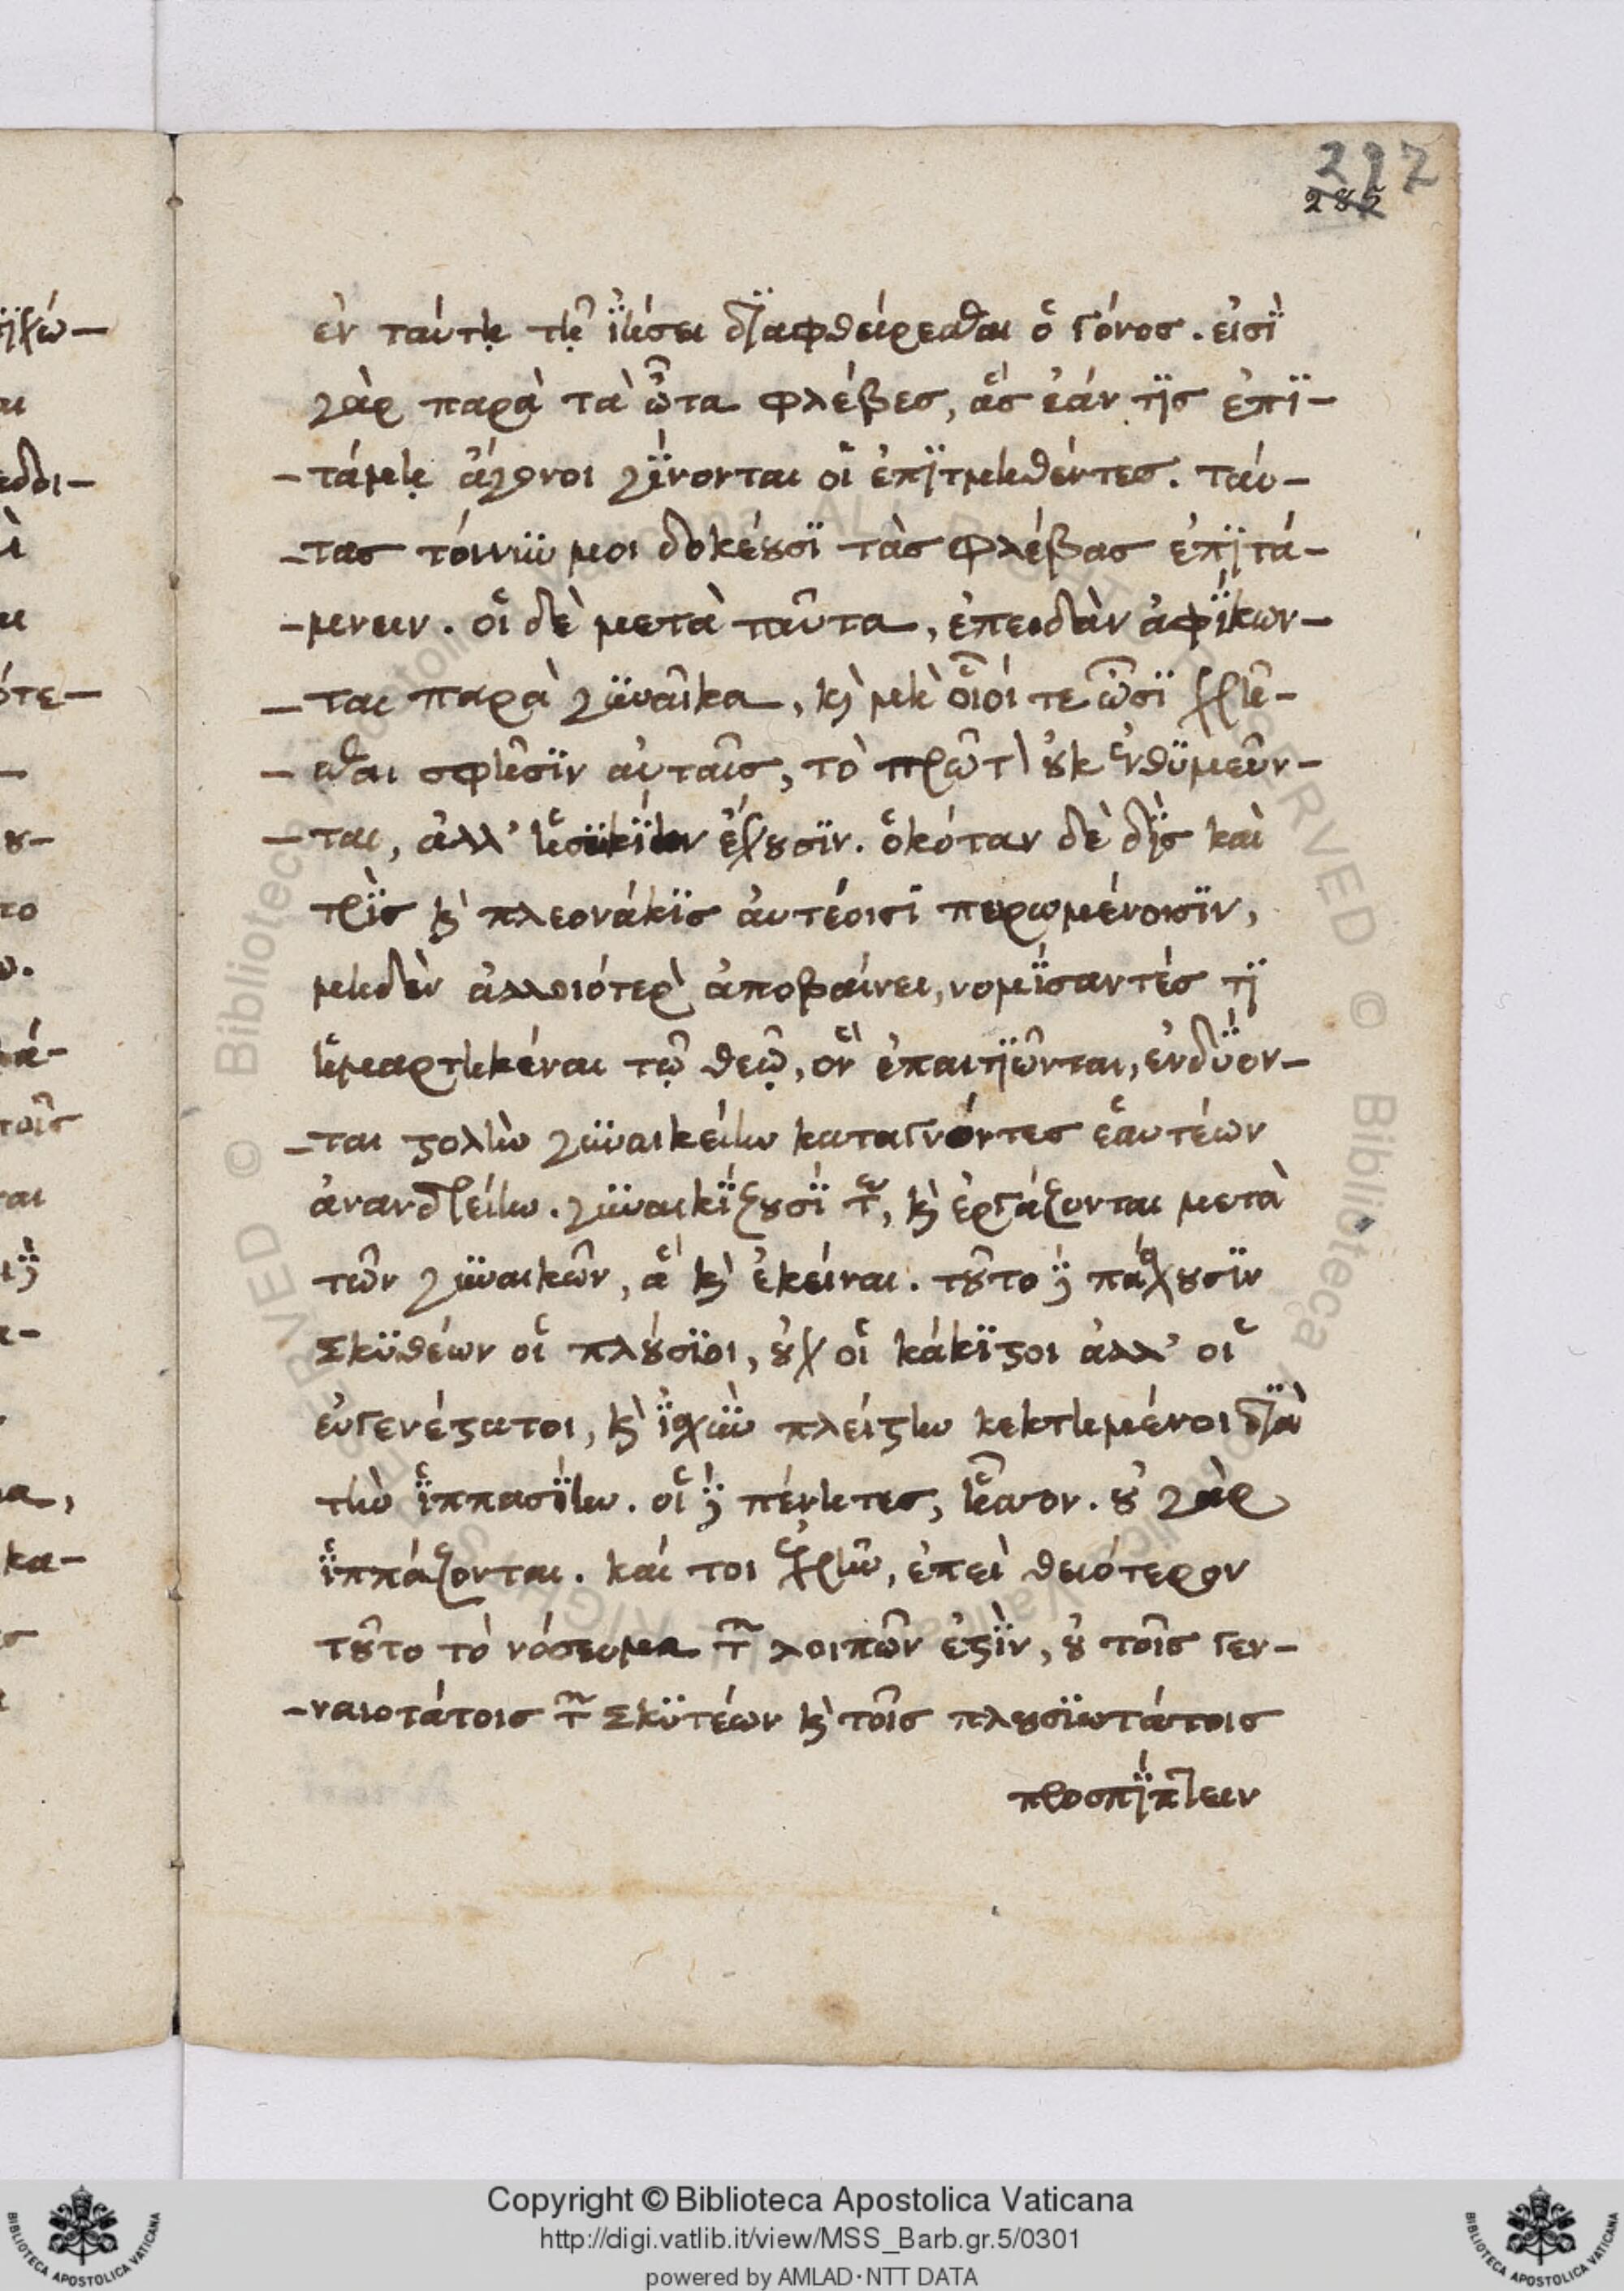 297
285
ἐν ταύτῃ τῇ ἰήσει διαφθείρεσθαι ὁ γόνος. εἰσὶ
γὰρ παρὰ τὰ ὦτα φλέβες, ἃς ἐάν τις ἐπι-
-τάμῃ ἄγονοι γίνονται οἱ ἐπιτμηθέντες. ταύ-
-τας τοίνυν μοι δοκέουσι τὰς φλέβας ἐπιτά-
-μνειν. οἱ δὲ μετὰ ταῦτα, ἐπειδὰν ἀφίκων-
-ται παρὰ γυναῖκα, κὴ μὴ οἷοί τε ὦσι χρῆ-
-σθαι σφῆσιν αὐταῖς, τὸ πρῶτον οὐκ ἐνθυμεῦν-
-ται, ἀλλ' ἡσυχίην ἔχουσιν. ὁκόταν δὲ δὶς καὶ
τρὶς κ πλεονάκις αὐτέοισι πειρωμένοισιν,
μηδὲν ἀλλοιότερον ἀποβαίνει, νομίσαντές τι
ἡμαρτηκέναι τῷ θεῷ, ὃν ἐπαιτιῶνται, ἐνδύον-
-ται στολὴν γυναικείην καταγνόντες ἑαυτέων
ἀνανδρείην. γυναικίζουσί τε, κ ἐργάζονται μετὰ
τῶν γυναικῶν, ἃ κ ἐκεῖναι. τοῦτο δὲ πάσχουσιν
Σκυθέων οἱ πλούσιοι, οὐχ οἱ κάκιστοι ἀλλ' οἱ
εὐγενέστατοι, κ ἰσχὺν πλείστην κεκτημένοι διὰ
τὴν ἱππασίην. οἱ δὲ πένητες, ἧσσον. οὐ γὰρ
ἱππάζονται. καί τοι ἐχρῆν, ἐπεὶ θειότερον
τοῦτο τὸ νόσευμα τῶν λοιπῶν ἐστὶν, οὐ τοῖς γεν-
-ναιοτάτοις τῶν Σκυτέων κ τοῖς πλουσιωτάτοις
προσπίπτειν
Copyright © Biblioteca Apostolica Vaticana
http://digi.vatlib.it/view/MSS_Barb.gr.5/0301
powered by AMLAD·NTT DATA